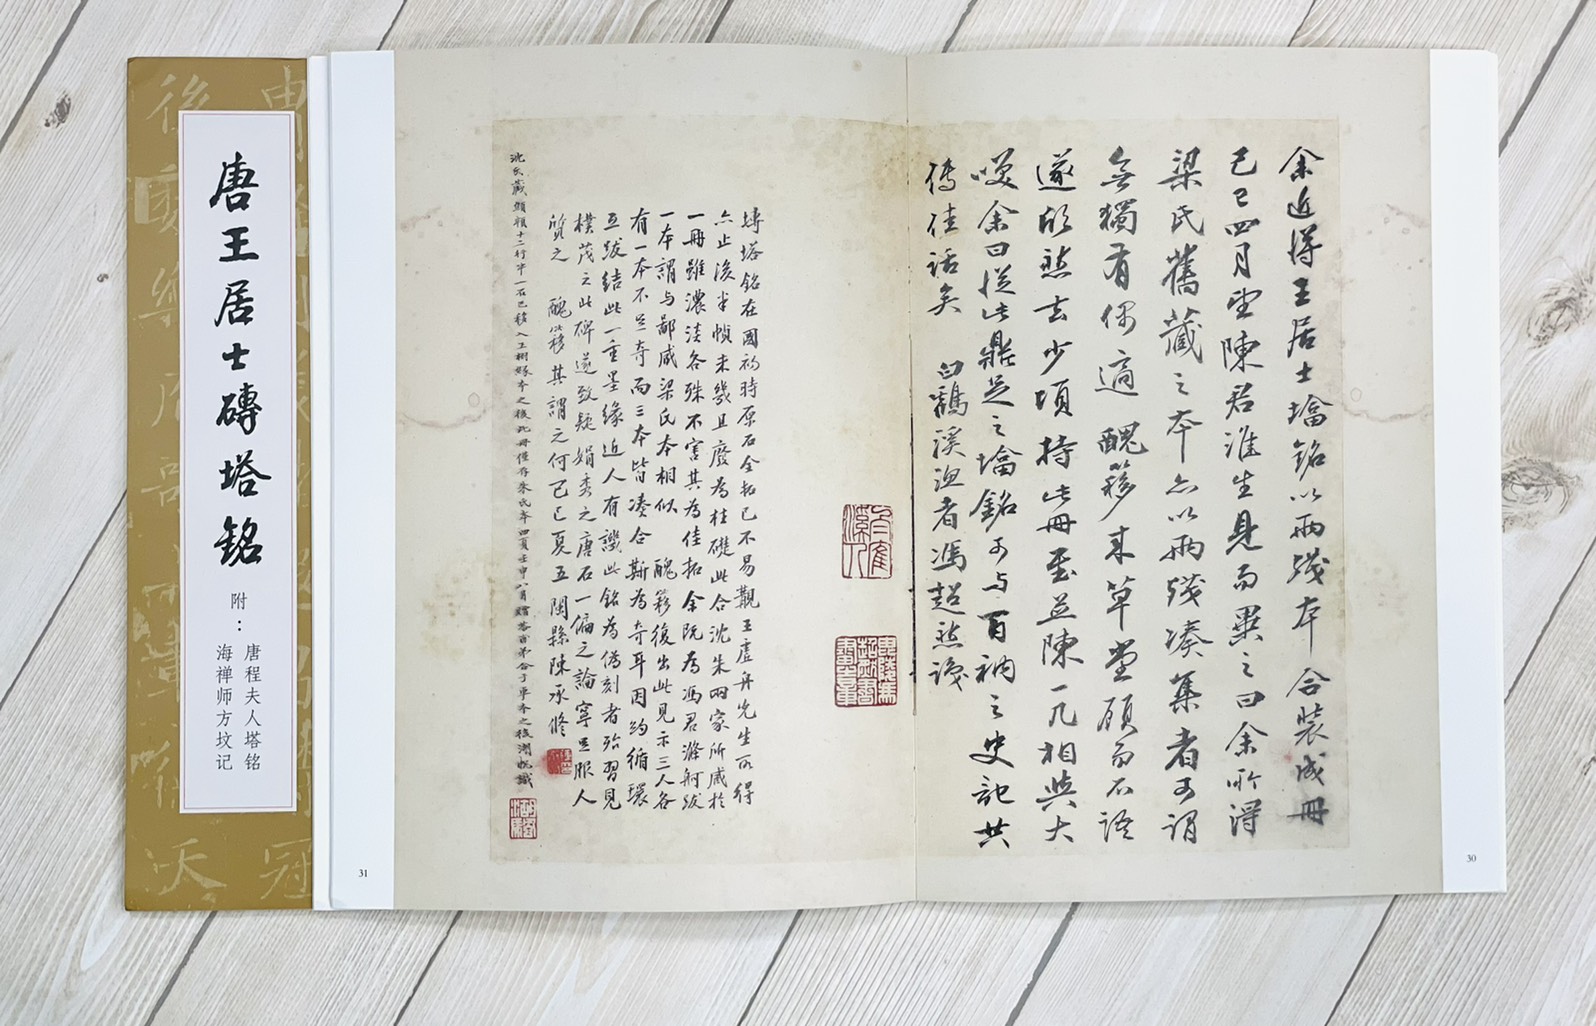 唐王居士磚塔銘
附：
唐程夫人塔铭
海禅师方坟记
余近得王居士塔銘以兩殘本合裝成冊
己巳四月望陳君淮生見而異之曰余所得
梁氏舊藏之本亦以兩殘湊集者可謂
無獨有偶適醜簃來草堂顧而不語
遂欣然去少頃持此冊至並陳一几相與大
噗余曰從此鼎足之塔銘可与百衲之史記共
傳佳話矣 白鶴溪漁者馮超然識
塼塔銘在國初時原石全拓已不易覯王虛舟先生所得
亦止後半幀未幾且廢為柱礎此合沈朱兩家所藏於
一冊雖濃淡各殊不害其為佳拓余既為馮君滌舸跋
一本謂与鄙咸梁氏本相似 醜簃後出此見示三人各
有一本不足奇而三本皆湊合斯為奇耳因約循環
互跋結此一重墨緣近人有譏此銘為偽刻者殆習見
樸茂之北碑遂致疑娟秀之唐石一偏之論寧足服人
質之 醜簃其謂之何己巳夏五閩縣陳承修
沈氏藏顯額十二行半一石已移入王樹
31
30